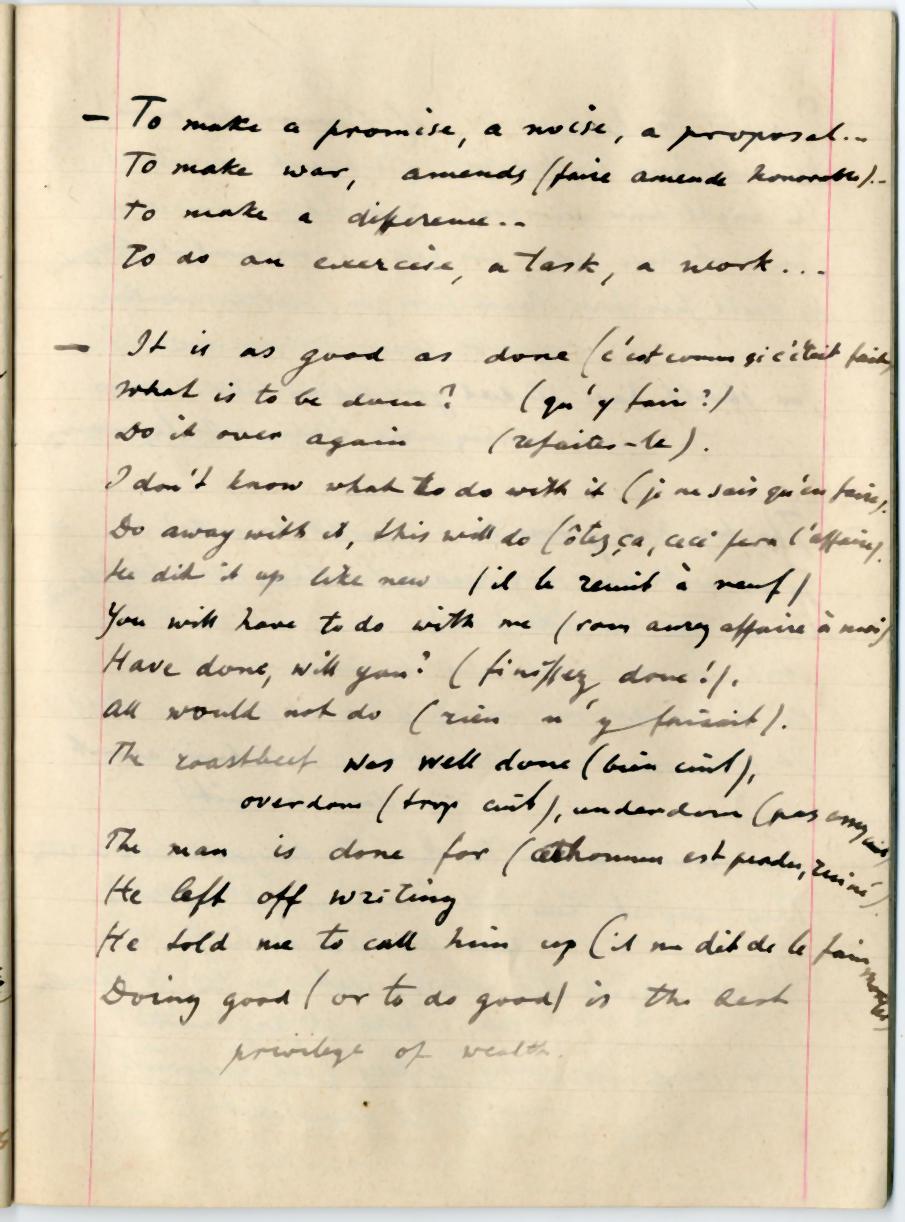 – To make a promise, a noise, a proposal...
To make war, amends (faire amende honorable)..
To make a difference...
To do an exercise, a task, a work...
– It is as good as done (c'est comme si c'était fait)
What is to be done? (qu'y faire?)
Do it over again (refaites-le).
I don't know what to do with it (je ne sais qu'en faire).
Do away with it, this will do (ôtez ça, ceci fera l'affaire).
He did it up like new (il le remit à neuf)
You will have to do with me (vous aurez affaire à moi)
Have done, will you? (finissez donc!).
All would not do (rien n'y faisait).
The roastbeef was well done (bien cuit),
overdone (trop cuit), underdone (pas assez cuit)
The man is done for (cet homme est perdu, ruiné).
He left off writing
He told me to call him up (il me dit de le faire monter)
Doing good (or to do good) is the best
privilege of wealth.